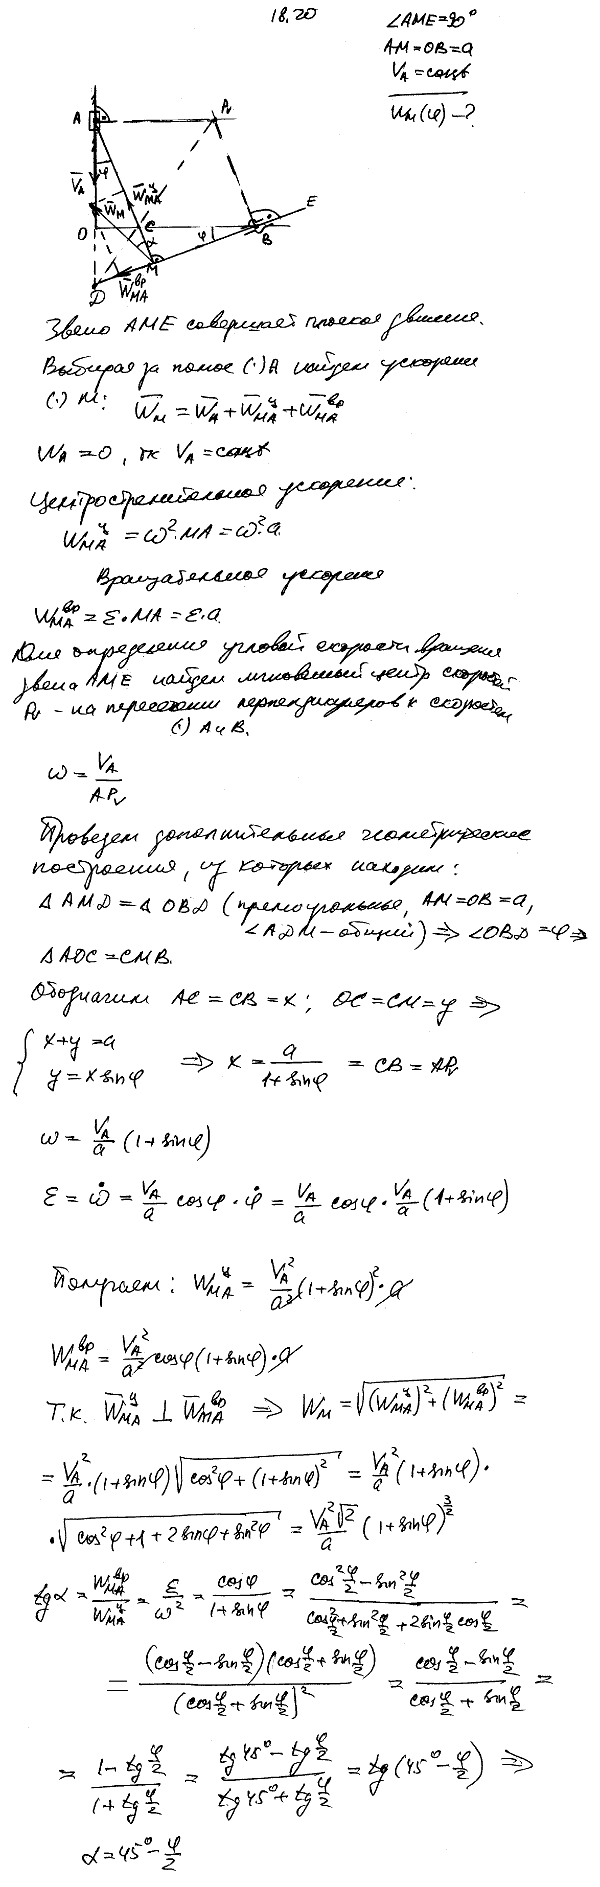 18.20
∠AME=90°
AM=OB=a
V_A=const
W_M(φ)-?
A
P_v
V̄_A
φ
W̄_M
W̄_MA^ц
O
C
α
φ
B
E
M
D
W̄_MA^вр
Звено AME совершает плоское движение.
Выбирая за полюс (·)A найдем ускорение
(·) M: W̄_M = W̄_A + W̄_MA^ц + W̄_MA^вр
W_A = 0, тк V_A = const
Центростремительное ускорение:
W_MA^ц = ω²·MA = ω²·a
Вращательное ускорение
W_MA^вр = ε·MA = ε·a
Для определения угловой скорости вращения
звена AME найдем мгновенный центр скоростей
P_v - на пересечении перпендикуляров к скоростям
(·) A и B.
ω = V_A / AP_v
Проведем дополнительные геометрические
построения, из которых находим:
Δ AMD = Δ OBD (прямоугольные, AM=OB=a,
∠ADM - общий) ⇒ ∠OBD = φ ⇒
Δ AOC = CMB.
Обозначим AC = CB = x; OC = CM = y ⇒
{ x+y = a
y = x sinφ ⇒ x = a / (1+sinφ) = CB = AP_v
ω = V_A/a (1+sinφ)
ε = ω̇ = V_A/a cosφ · φ̇ = V_A/a cosφ · V_A/a (1+sinφ)
Получаем: W_MA^ц = V_A²/a² (1+sinφ)² · a
W_MA^вр = V_A²/a² cosφ (1+sinφ) · a
Т.к. W̄_MA^ц ⊥ W̄_MA^вр ⇒ W_M = √((W_MA^ц)² + (W_MA^вр)²) =
= V_A²/a · (1+sinφ) √(cos²φ + (1+sinφ)²) = V_A²/a (1+sinφ) ·
· √(cos²φ + 1 + 2sinφ + sin²φ) = V_A²√2/a (1+sinφ)^(3/2)
tgα = W_MA^вр / W_MA^ц = ε/ω² = cosφ / (1+sinφ) = (cos²φ/2 - sin²φ/2) / (cos²φ/2 + sin²φ/2 + 2sinφ/2 cosφ/2) =
= (cosφ/2 - sinφ/2)(cosφ/2 + sinφ/2) / (cosφ/2 + sinφ/2)² = (cosφ/2 - sinφ/2) / (cosφ/2 + sinφ/2) =
= (1 - tgφ/2) / (1 + tgφ/2) = (tg45° - tgφ/2) / (tg45° + tgφ/2) = tg(45° - φ/2) ⇒
α = 45° - φ/2